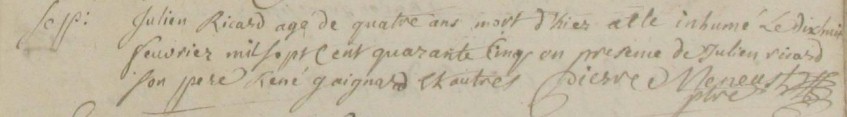 Sep: Julien Ricard agé de quatre ans mort d'hier a ete inhumé Le dixhuit
feuvrier mil sept Cent quarante Cinq en presence de Julien ricard
son pere René gaignard et autres Pierre Meneust
ptre